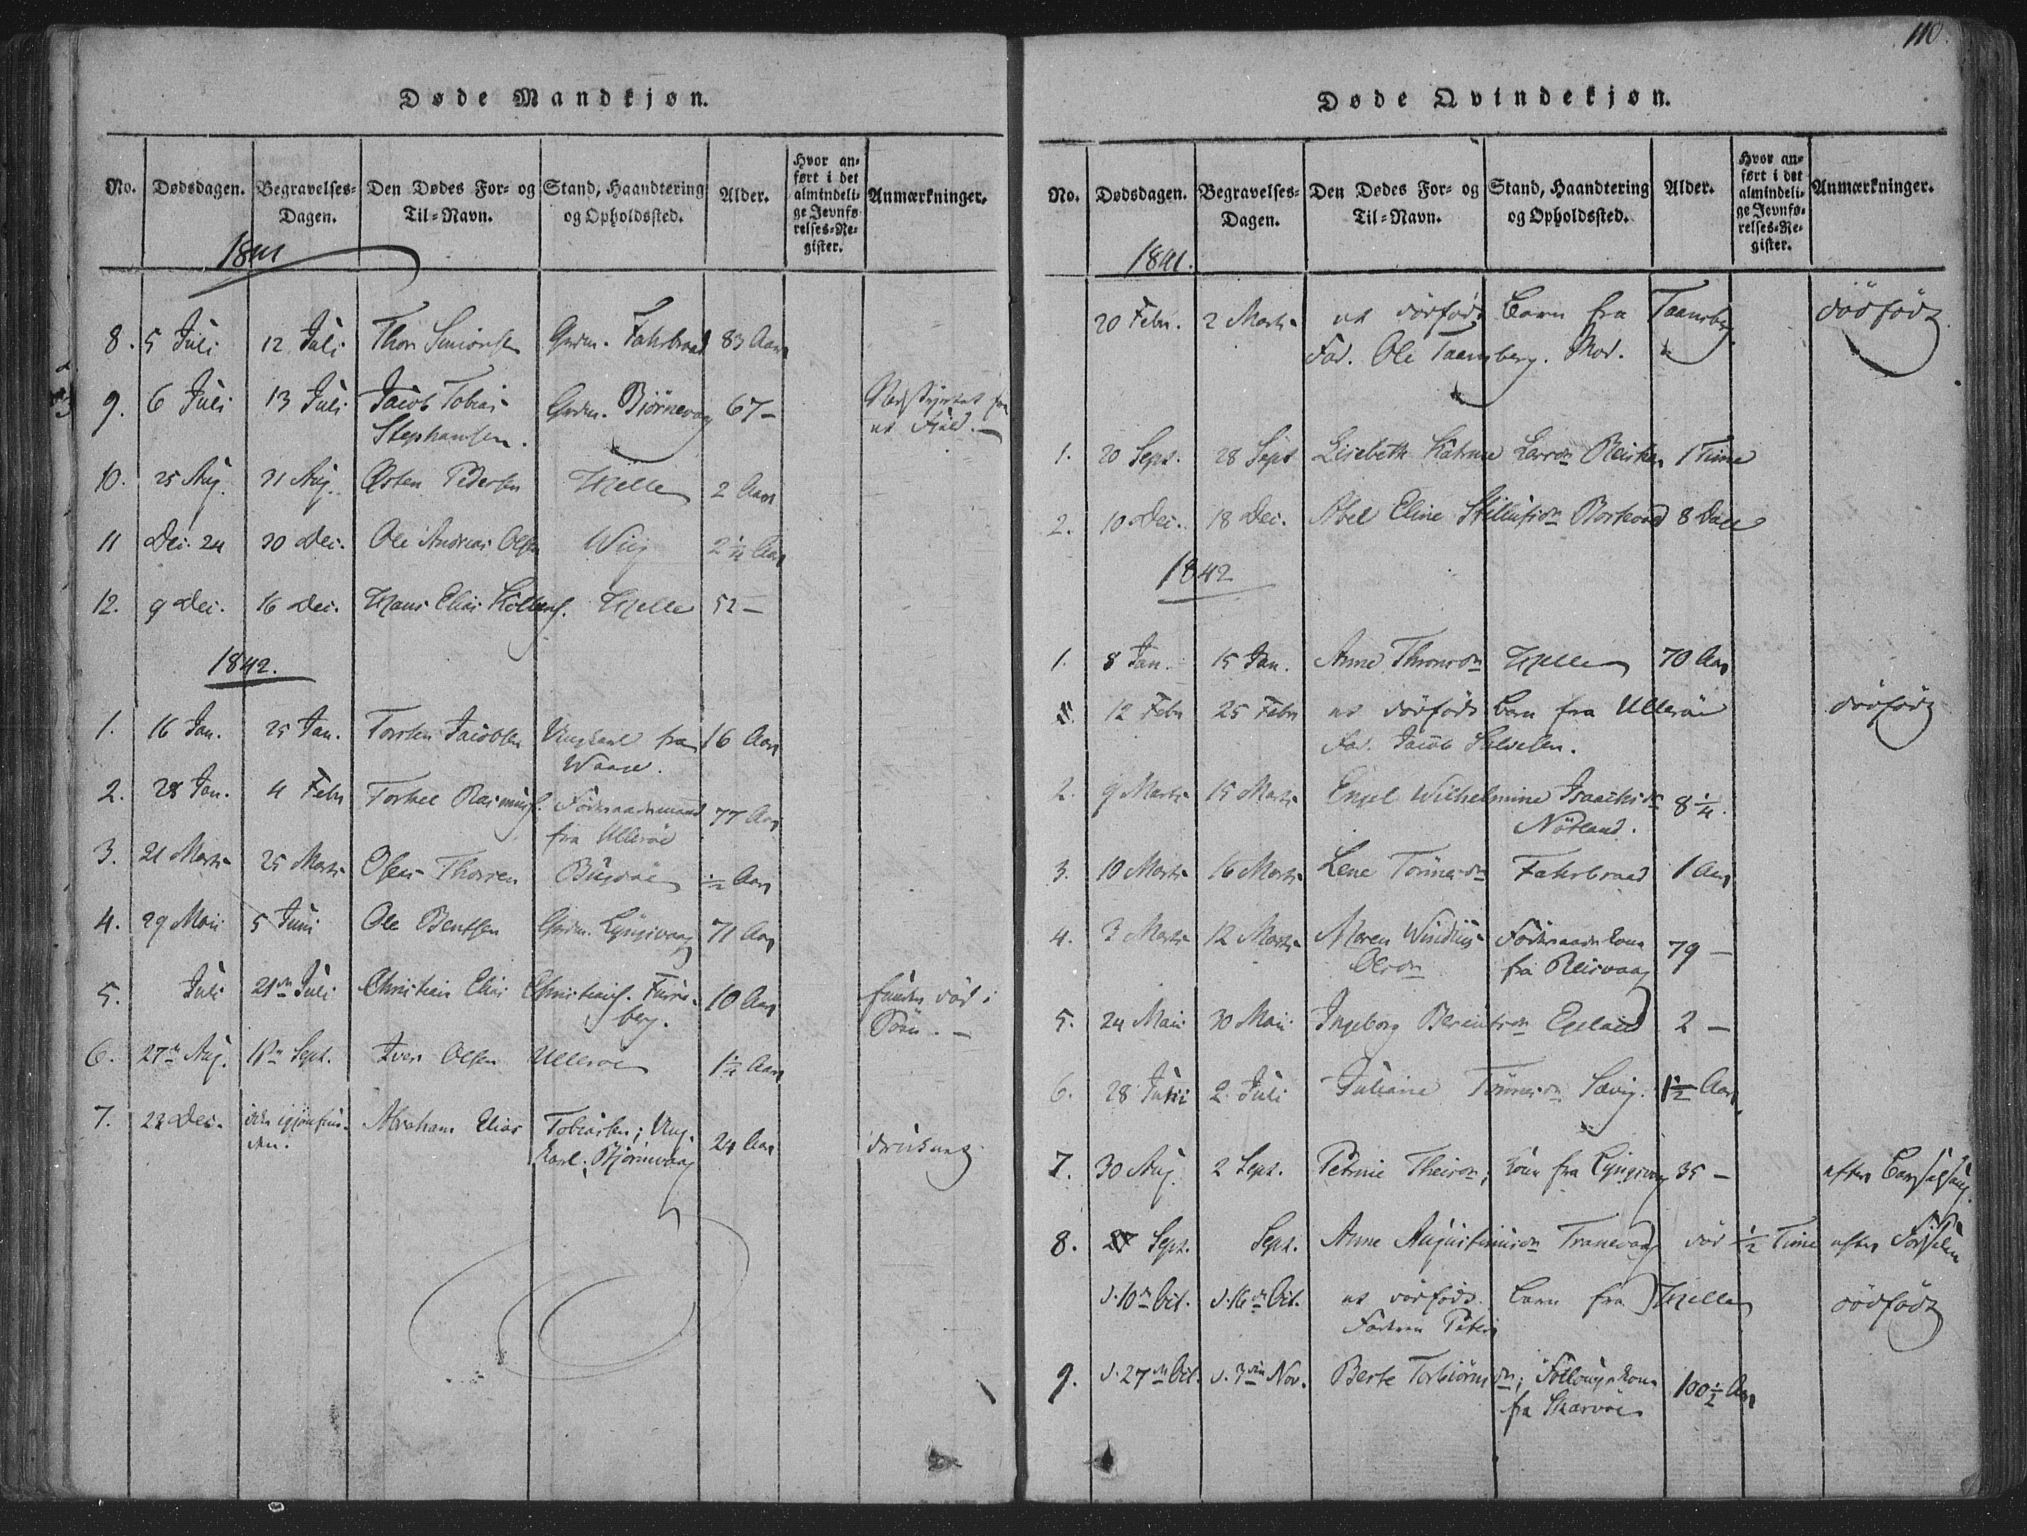 110.
Døde Mandkjøn.
No. Dødsdagen. Begravelses-Dagen. Den Dødes For- og Til-Navn. Stand, Haandtering og Opholdssted. Alder. Hvor anført i det almindelige Jevnførelses-Register. Anmærkninger.
1841
8. 5 Juli 12 Juli Thor Simonsen Gdm. Fahrbraad 83 Aar
9. 6 Juli 13 Juli Jacob Tobias Gdm. Bjørnevaag 67 -
Stephansen.
10. 25 Aug. 31 Aug. Østen Pedersen Hille 2 Aar
11 Dec. 24 30 Dec. Ole Andreas Olsen Wiig 2 1/4 Aar
12. 9 Dec. 16 Dec. Hans Elias Hille 52 -
1842.
1. 16 Jan. 25 Jan. Torsten Jacobsen Ungkarl fra 16 Aar
Waare.
2. 28 Jan. 4 Febr Torkel Rasmus. 77 Aar
fra Ullerøe
3. 21 Marts 25 Marts Thorsen 1/2 Aar
4. 29 Maii 5 Juni Ole Bentsen Gdm. Lyngsvaag 71 Aar
5. Juli 21de Juli Christian Elias Christians. 10 Aar funden død i
berg. Søen. -
6. 27de Aug. Sept. Iver Olsen Ullerøe 1 1/2 Aar
7. 22 Dec. Abraham Elias Tobiassen; Ung- 24 Aar druknet
karl; Bjørnevaag
Døde Qvindekjøn.
No. Dødsdagen. Begravelses-Dagen. Den Dødes For- og Til-Navn. Stand, Haandtering og Opholdssted. Alder. Hvor anført i det almindelige Jevnførelses-Register. Anmærkninger.
1841.
20 Febr. 2 Marts et dødfødt Barn fra Taansberg dødfødt
Fad. Ole Taansberg. Mod.
1. 20 Sept. 28 Sept Lisebeth 1 Time
2. 10 Dec. 18 Dec. Abel Eline 8 Dage
1842
1. 8 Jan. 15 Jan. Anne Hille 70 Aar
12 Febr 25 Febr et dødfødt Barn fra Ullerøe dødfødt
Fad. Jacob Salvesen.
2. 9 Marts 15 Marts Engel Wilhelmine Isaachsdn 8 1/4.
Nøtland.
3. 10 Marts 16 Marts Lene Tønnesdn Fahrbraad 1 Aar
4. 3 Marts 12 Marts Maren Føderaadskone 79 -
Olesdn fra Reisvaag
5. 24 Maii 30 Maii Ingeborg Berentsdn Egeland 2 -
6. 28 Juni 2 Juli Juliane Tønnesdn Sævig. 1 1/2 Aar
7. 30 Aug. 2 Sept. Petrine Theisdn; kone fra Lyngsvaag 35 - efter Barselseng
8. Sept. Sept. Anne Augustinusdn Tranevaag død 1/2 Time efter Fødselen
d. 10de Oct. d. 16de Oct. et dødfødt Barn fra Hille dødfødt
9. d. 27de Oct. d. 3die Nov. Berte Torbiørnsdn; 100 1/2 Aar
fra Skarvøe